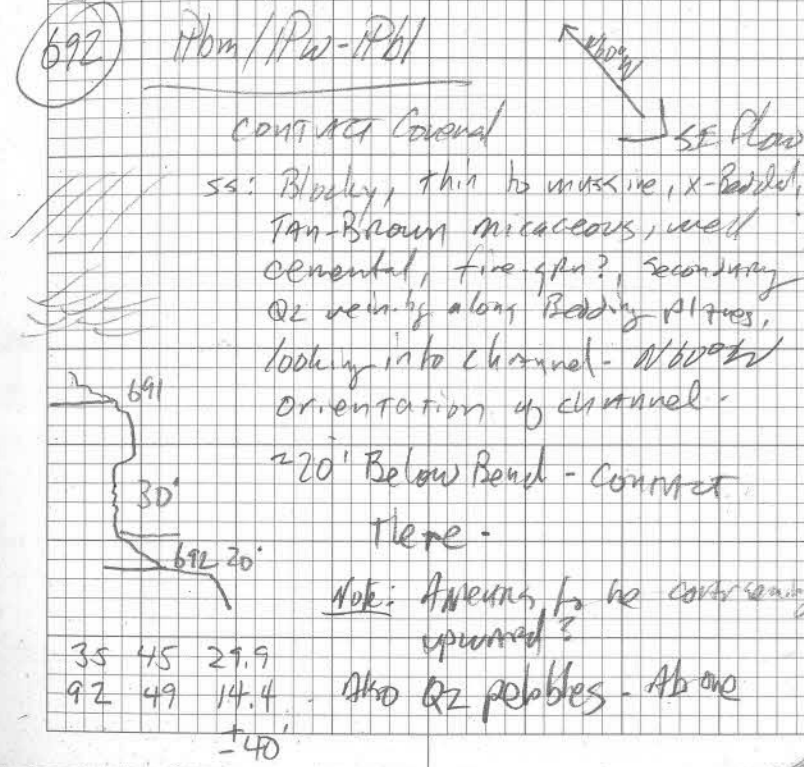 692 IPbm/IPw-IPbl
N60°W
SE Flow
CONTACT Covered
ss: Blocky, thin to massive, X-Bedded,
TAn-Brown micaceous, well
cemented, fine-grn?, secondary
Qz veining along Bedding planes,
looking into channel - N60°W
Orientation of channel.
691
~20' Below Bend - Contact
30'
Here -
692 20'
Note: Appears to be coarsening
upward?
35 45 29.9
92 49 14.4 Also Qz pebbles - Above
±40'